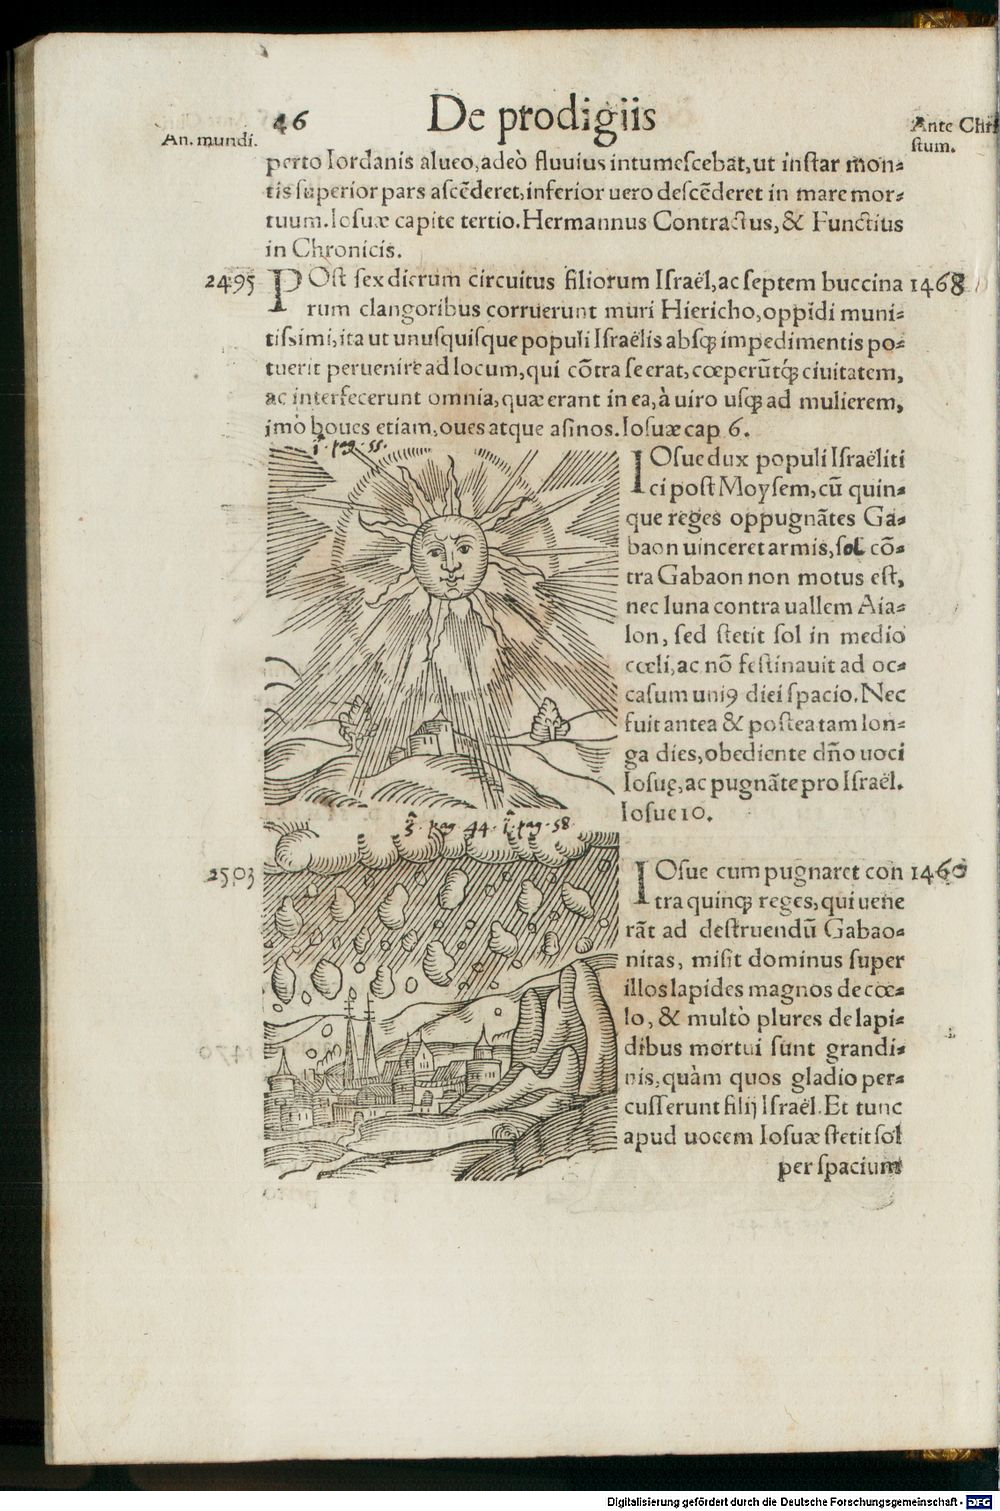 46
De prodigiis
An. mundi.
Ante Chri
stum.
perto Iordanis alueo, adeò fluuius intumescebat, ut instar mon⸗
tis superior pars ascẽderet, inferior uero descẽderet in mare mor⸗
tuum. Iosuæ capite tertio. Hermannus Contractus, & Functius
in Chronicis.
2495 POst sex dierum circuitus filiorum Israël, ac septem buccina 1468
rum clangoribus corruerunt muri Hiericho, oppidi muni⸗
tissimi, ita ut unusquisque populi Israëlis absq; impedimentis po⸗
tuerit peruenire ad locum, qui cõtra se erat, cœperũtq́; ciuitatem,
ac interfecerunt omnia, quæ erant in ea, à uiro usq; ad mulierem,
imò boues etiam, oues atque asinos. Iosuæ cap 6.
pag. 55.
IOsue dux populi Israëliti
ci post Moysem, cũ quin⸗
que reges oppugnãtes Ga⸗
baon uinceret armis, sol cõ⸗
tra Gabaon non motus est,
nec luna contra uallem Aia⸗
lon, sed stetit sol in medio
cœli, ac nõ festinauit ad oc⸗
casum uniꝰ diei spacio. Nec
fuit antea & postea tam lon⸗
ga dies, obediente dño uoci
Iosuę, ac pugnãte pro Israël.
Iosue 10.
3. pag. 44. pag. 58
2503 IOsue cum pugnaret con 1460
tra quinq; reges, qui uene
rãt ad destruendũ Gabao⸗
nitas, misit dominus super
illos lapides magnos de cœ⸗
lo, & multò plures de lapi⸗
dibus mortui sunt grandi⸗
nis, quàm quos gladio per⸗
cusserunt filij Israël. Et tunc
apud uocem Iosuæ stetit sol
per spacium
Digitalisierung gefördert durch die Deutsche Forschungsgemeinschaft - DFG